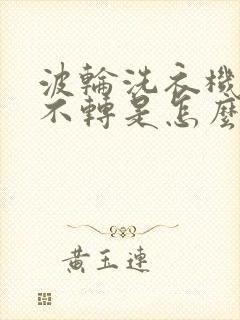 波輪洗衣機
不轉是怎麼
黃玉連